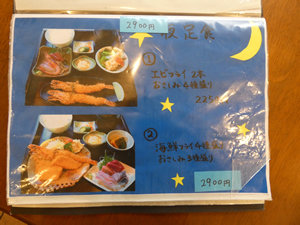 2900円
夜定食
①
エビフライ 2本
おさしみ4種盛り
②
海鮮フライ4種盛り
おさしみ3種盛り
2900円